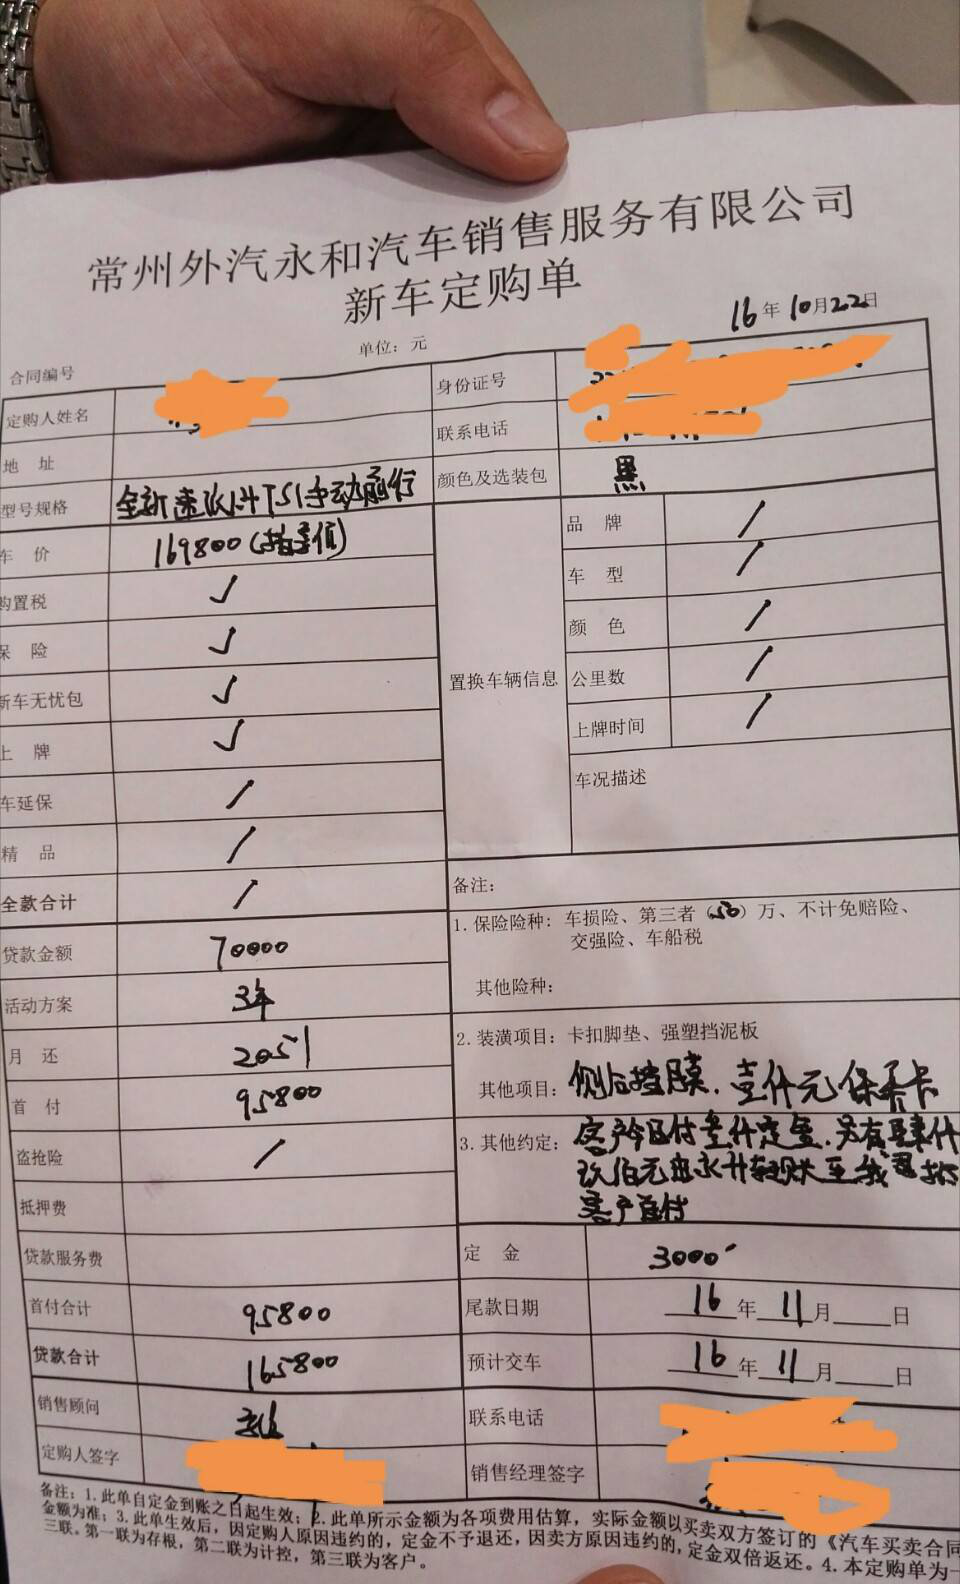 常州外汽永和汽车销售服务有限公司
新车定购单
16年10月22日
单位：元
合同编号
定购人姓名
身份证号
联系电话
地 址
型号规格 全新速派1.4TSI手动前行
颜色及选装包 黑
车 价 169800(指导价)
购置税 ✓
保 险 ✓
新车无忧包 ✓
上 牌 ✓
车延保 /
精 品 /
全款合计 /
置换车辆信息
品 牌 /
车 型 /
颜 色 /
公里数 /
上牌时间 /
车况描述
贷款金额 70000
活动方案 3年
月 还 2051
首 付 95800
盗抢险 /
抵押费
贷款服务费
首付合计 95800
贷款合计 165800
备注：
1.保险险种：车损险、第三者（50）万、不计免赔险、
交强险、车船税
其他险种：
2.装潢项目：卡扣脚垫、强塑挡泥板
其他项目：侧后挡膜、壹仟元保养卡
3.其他约定：客户今日付叁仟定金，另有肆仟
玖佰元由永升转账至我司
客户首付
定 金 3000
尾款日期 16年11月 日
预计交车 16年11月 日
销售顾问
联系电话
定购人签字
销售经理签字
备注：1.此单自定金到账之日起生效；2.此单所示金额为各项费用估算，实际金额以买卖双方签订的《汽车买卖合同
金额为准；3.此单生效后，因定购人原因违约的，定金不予退还，因卖方原因违约的，定金双倍返还。4.本定购单为一
三联。第一联为存根，第二联为计控，第三联为客户。